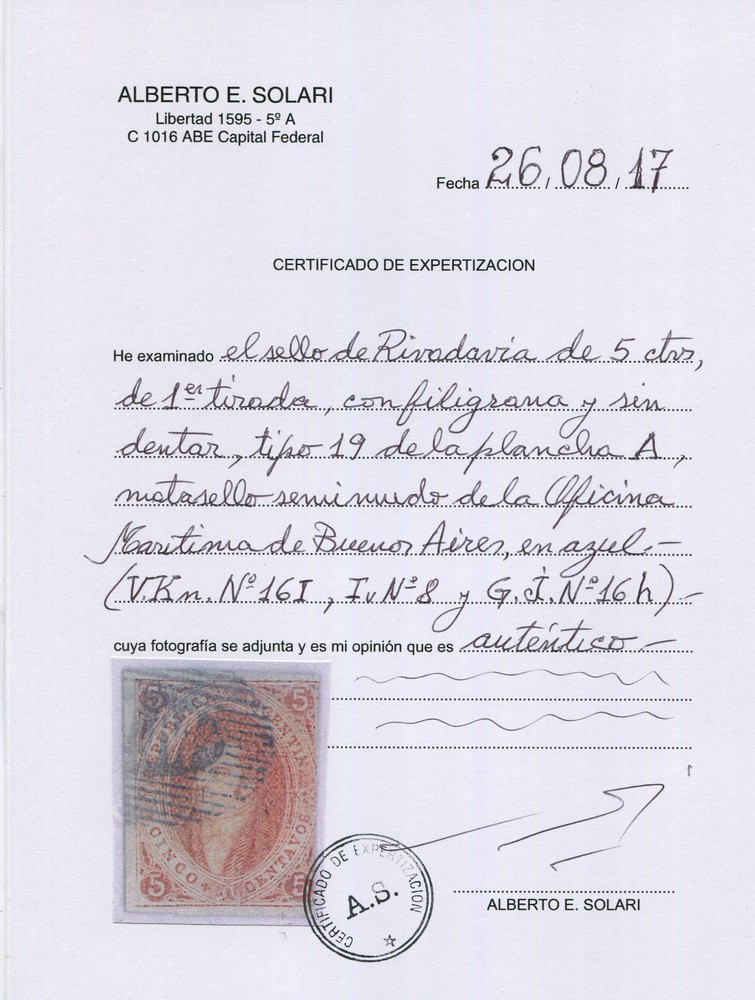 ALBERTO E. SOLARI
Libertad 1595 - 5º A
C 1016 ABE Capital Federal
Fecha 26 / 08 / 17
CERTIFICADO DE EXPERTIZACION
He examinado el sello de Rivadavia de 5 ctvs,
de 1er tirada, con filigrana y sin
dentar, tipo 19 de la plancha A,
matasello semimudo de la Oficina
Marítima de Buenos Aires, en azul -
(V.Kn. Nº 16I, Iv Nº 8 y G.J. Nº 16 h) -
cuya fotografía se adjunta y es mi opinión que es auténtico -
5 5
CINCO CENTAVOS
5 5
CERTIFICADO DE EXPERTIZACION
A.S.
ALBERTO E. SOLARI